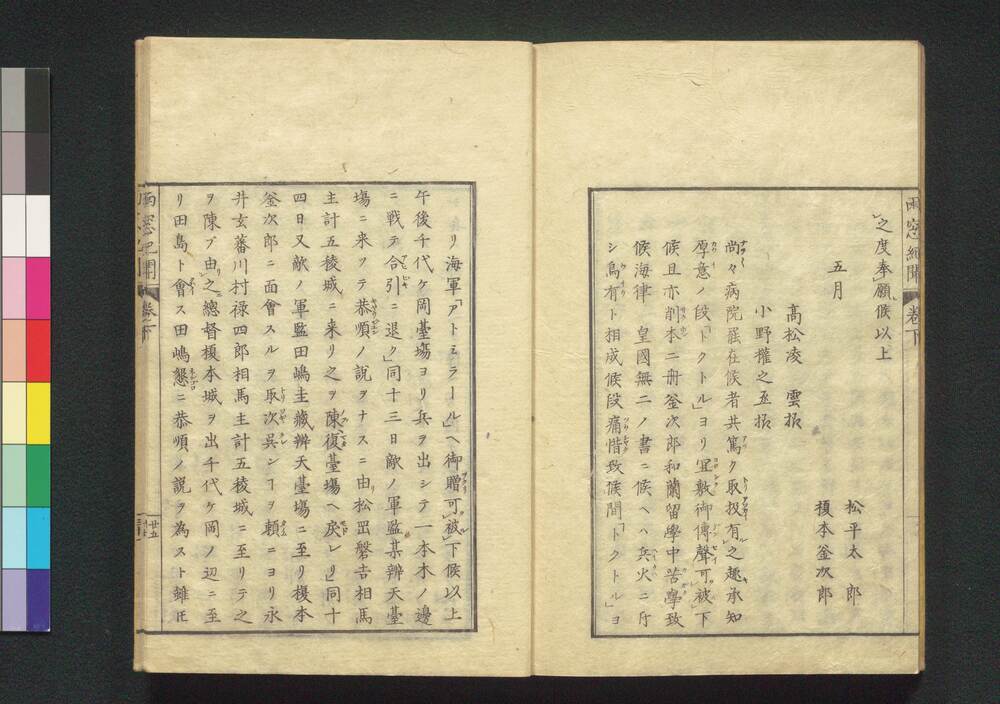 雨窓紀聞 卷下
之度奉願候以上
五月
松平太郎
榎本釜次郎
高松凌雲採
小野權之丞採
尚々病院罷在候者共篤ク取扱有之趣承知
厚意ノ段「トクトル」ヨリ宜敷御傳聲可被下
候且亦別本二册釜次郎和蘭留學中苦學致
候海律 皇國無二ノ書ニ候ヘハ兵火ニ付
シ烏有ト相成候段痛惜致候間「トクトル」ヨ
リ海軍「アトミラール」ヘ御贈可被下候以上
午後千代ケ岡臺場ヨリ兵ヲ出シテ一本木ノ邊
ニ戰テ合引ニ退ク」同十三日敵ノ軍監某辨天臺
場ニ来ツテ恭順ノ說ヲナスニ由松岡磐吉相馬
主計五稜城ニ来リ之ヲ陳復臺場ヘ戾レリ」同十
四日又敵ノ軍監田嶋圭藏辨天臺場ニ至リ榎本
釜次郎ニ面會スルヲ取次呉ンヿヲ賴ニヨリ永
井玄蕃川村祿四郎相馬主計五稜城ニ至リテ之
ヲ陳ブ由之總督榎本城ヲ出千代ケ岡ノ辺ニ至
リ田島ト會ス田嶋懇ニ恭順ノ說ヲ為スト雖𪜈
雨窓紀聞 卷下
廿五